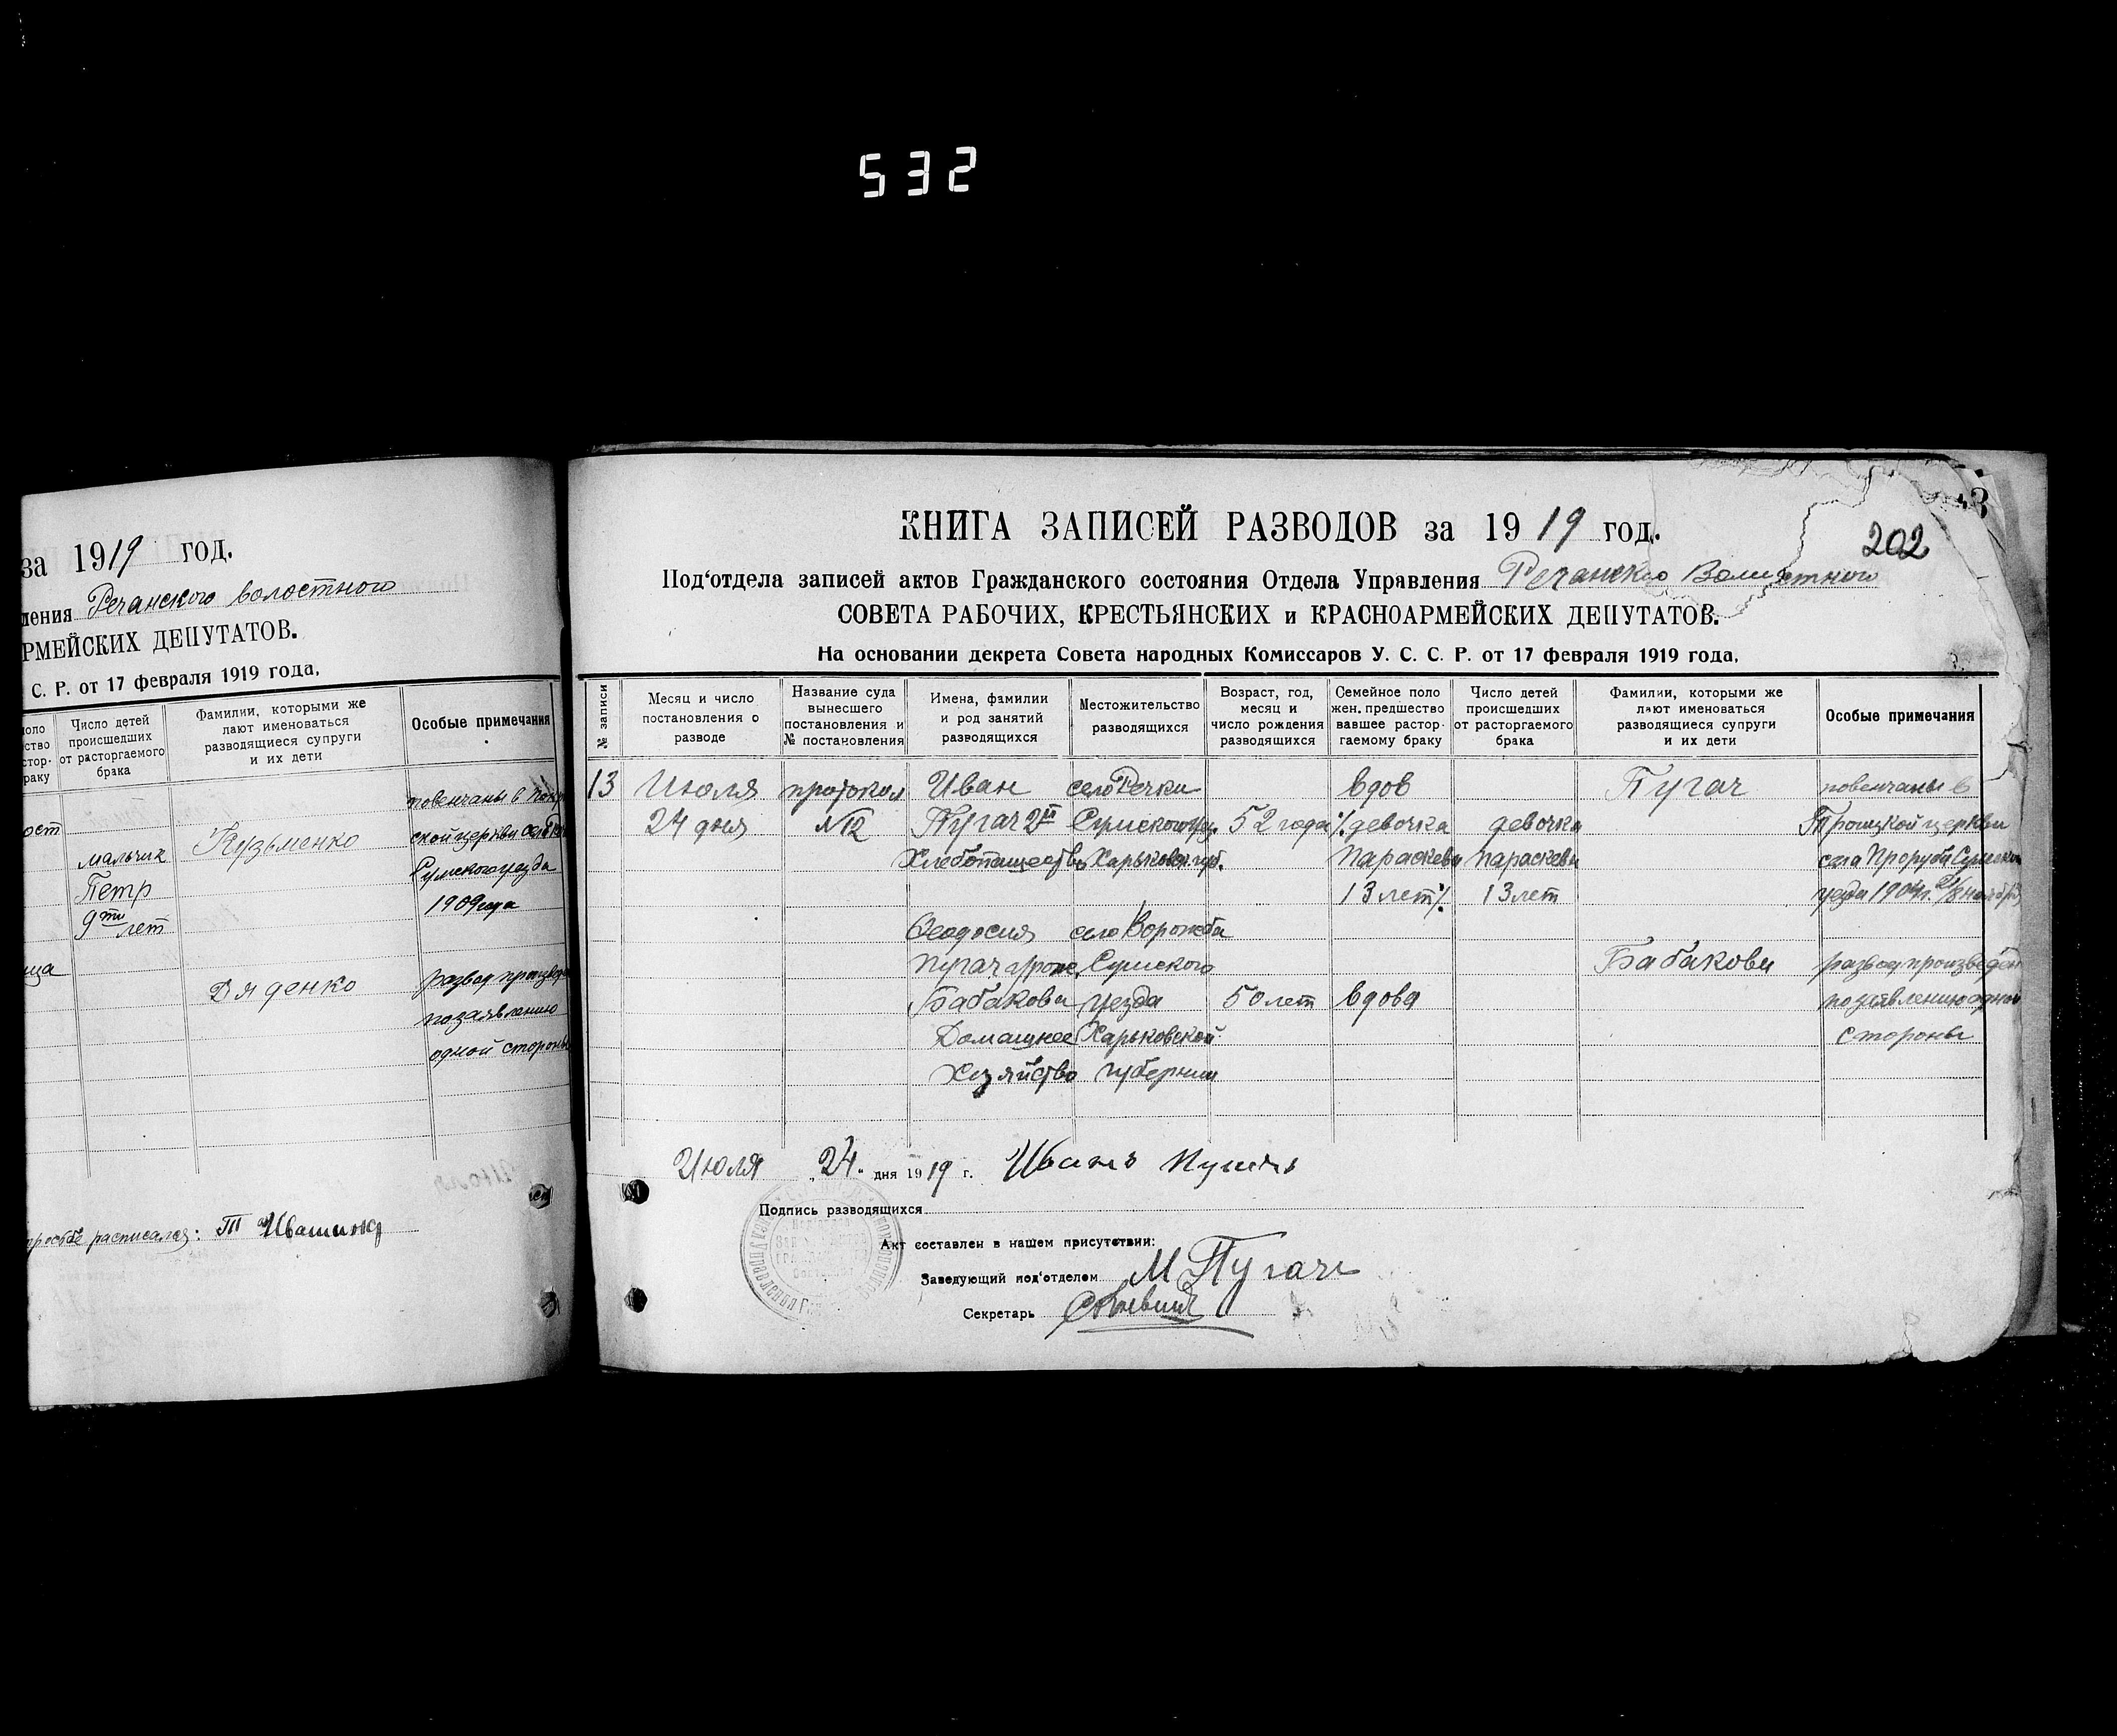 532
за 1919 год.
ления Речанского волостного
РМЕЙСКИХ ДЕПУТАТОВ.
С. Р. от 17 февраля 1919 года,
Число детей происшедших от расторгаемого брака
Фамилии, которыми же лают именоваться разводящиеся супруги и их дети
Особые примечания
повенчаны в
ской церкви села
мальчик Кузьменко Сумского уезда
Петр 1909 года
9ти лет
Дяденко развод произведен
по заявлению
одной стороны
просьбе расписался: Т Ивашина
КНИГА ЗАПИСЕЙ РАЗВОДОВ за 1919 год.
202
Под'отдела записей актов Гражданского состояния Отдела Управления Речанского Волостного
СОВЕТА РАБОЧИХ, КРЕСТЬЯНСКИХ и КРАСНОАРМЕЙСКИХ ДЕПУТАТОВ.
На основании декрета Совета народных Комиссаров У. С. С. Р. от 17 февраля 1919 года,
№ записи
Месяц и число постановления о разводе
Название суда вынесшего постановления и № постановления
Имена, фамилии и род занятий разводящихся
Местожительство разводящихся
Возраст, год, месяц и число рождения разводящихся
Семейное поло жен. предшество вавшее растор- гаемому браку
Число детей происшедших от расторгаемого брака
Фамилии, которыми же лают именоваться разводящиеся супруги и их дети
Особые примечания
13 Июля протокол Иван село Речки вдов Пугач повенчаны в
24 дня №12 Пугач 2й Сумского уез. 52 года % девочка девочка Троицкой церкви
Хлебопашество Харьковск. губ. Параскева Параскева села Прорубь Сумского
13 лет % 13 лет уезда 1904 г. ноября
Феодосия село Ворожба
Пугач Сумского Бабакова развод произведен
Бабакова уезда 50 лет вдова по заявлению одной
Домашнее Харьковской стороны
Хозяйство губернии
Июля „24. дня 1919 г. Иванъ Пугачъ
Подпись разводящихся
Акт составлен в нашем присутствии:
Заведующий под'отделом М Пугач
Секретарь